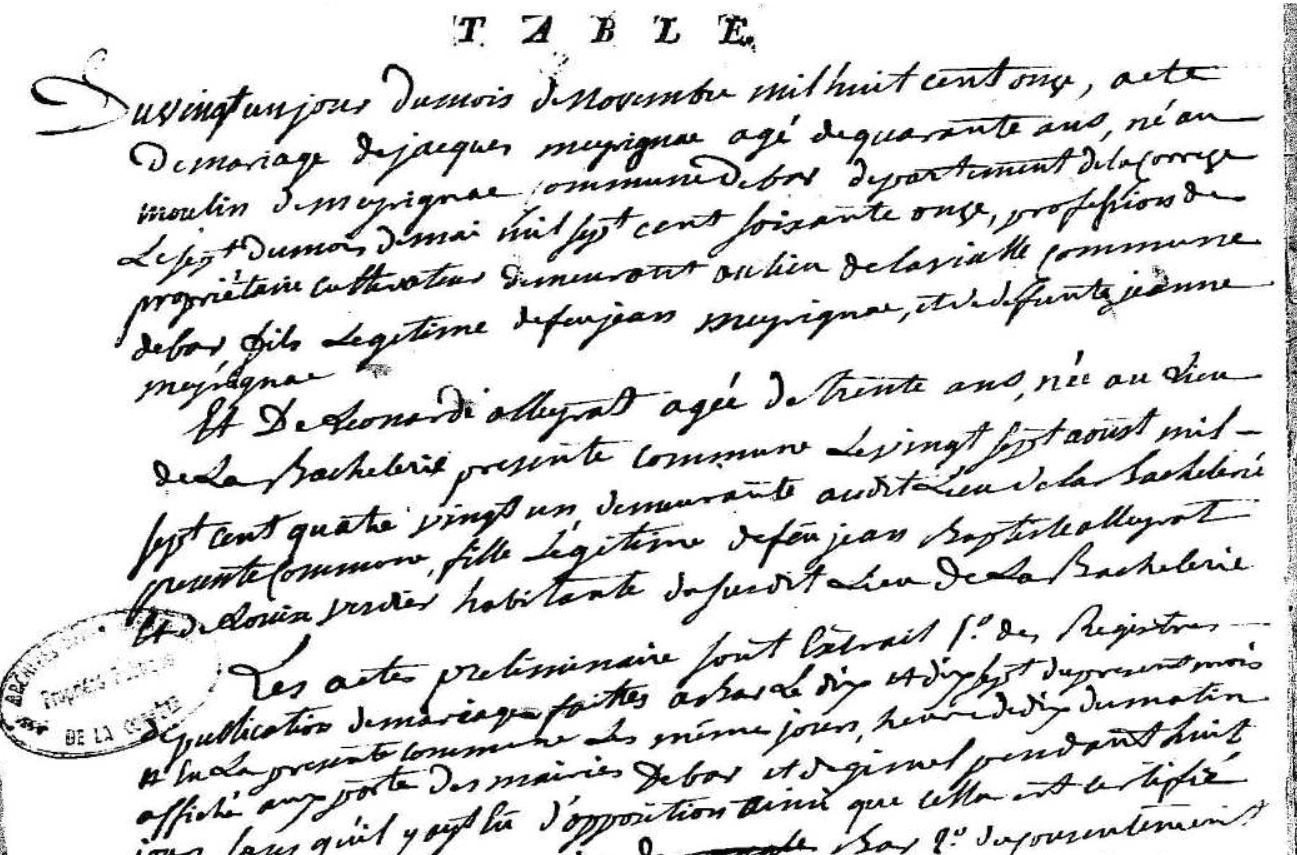 TABLE.
Du vingt un jour du mois de Novembre mil huit cent onze, acte
De mariage de jacques meyrignac agé de quarante ans, né au
moulin de meyrignac commune de bar departement de la Correze
Le sept du mois de mai mil sept cent soixante onze, profession de
propriètaire cultivateur demeurant au lieu de lavialle commune
de bar, fils Legitime de feu jean meyrignac, et de defunte jeanne
meyrignac
Et De Leonarde alleyrat agée de trente ans, née au Lieu
de La Bachelerie presente commune Le vingt sept aoust mil
sept cent quatre vingt un demeurante audit Lieu de la Bachelerie
presente Commune, fille Légitime de feu jean Baptiste alleyrat
Et de Louise verdier habitante du susdit Lieu de La Bachelerie
Les actes preliminaire sont L'extrait 1.º des Registres
de publication de mariage faittes a bar Le dix et dix sept du present mois
et En La presente commune Les même jours, heure de dix du matin
affiché aux porte des mairies De bar et de gimel pendant huit
jours sans qu'il y ayt Eû d'opposition ainsi que cella est certifié
Bar 2.º du consentement
ARCHIVES
Propriété Publique
DE LA CORRÈZE